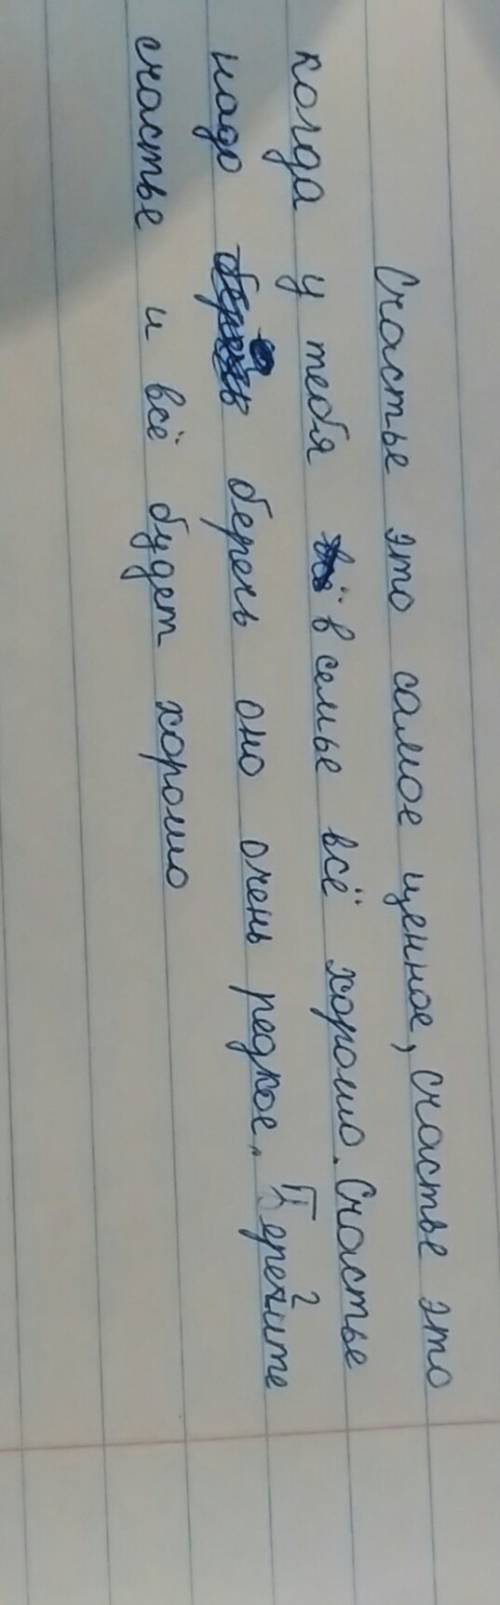 Счастье это самое щенное, счастье это
когда у тебя в семье всё хорошо. Счастье
надо беречь оно очень редкое. Берегите
счастье и всё будет хорошо